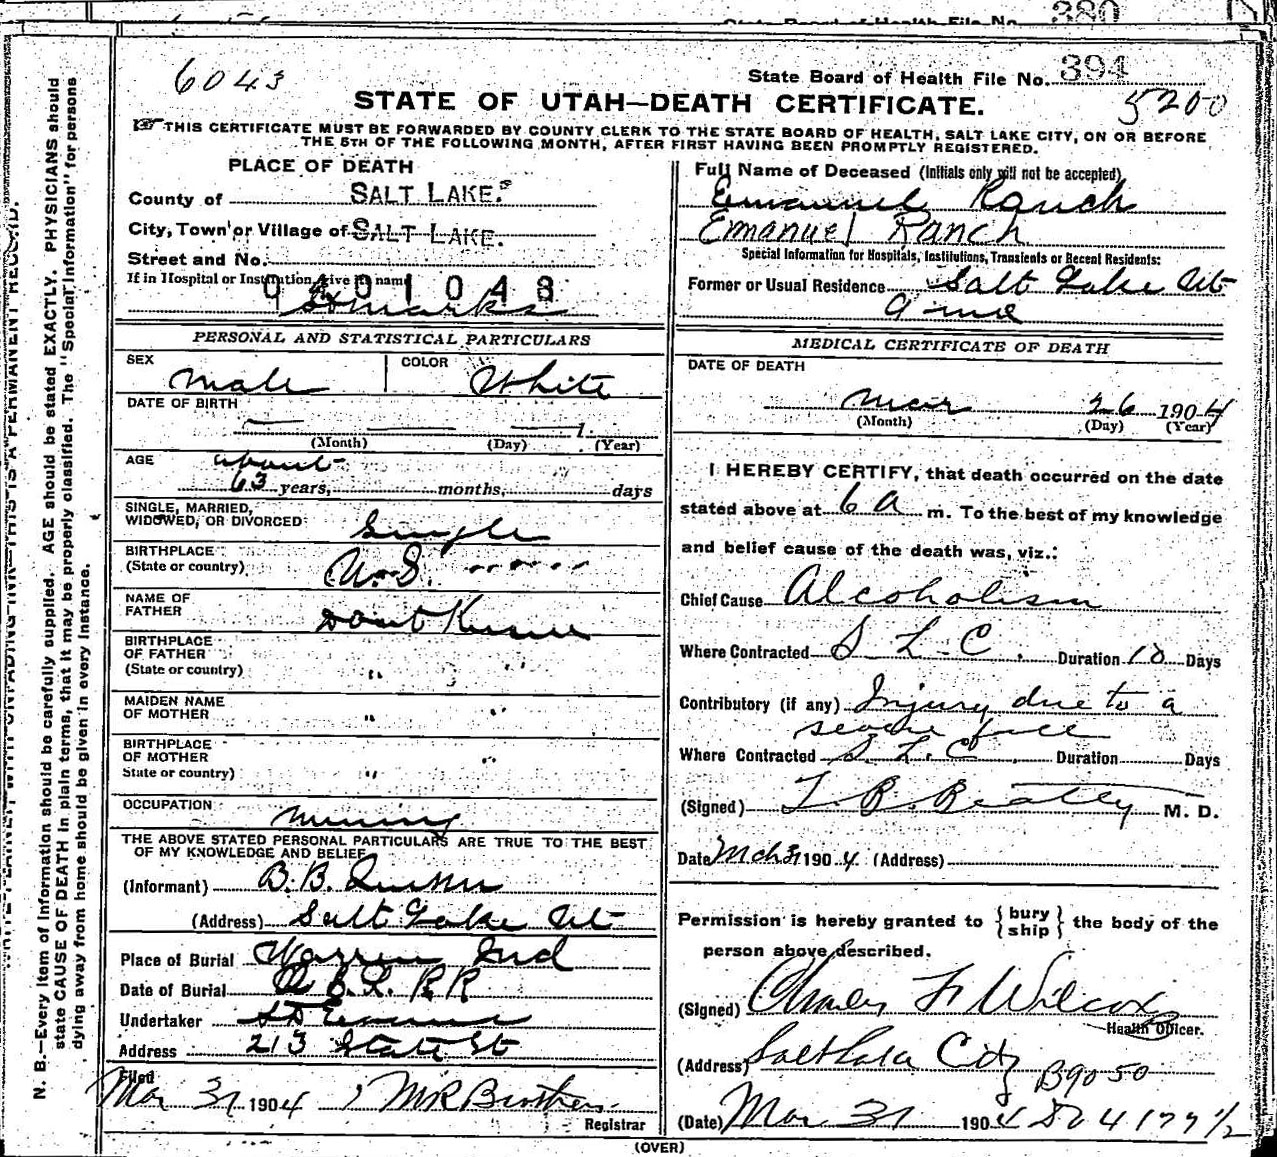 380
State Board of Health File No.
6043
State Board of Health File No. 394
STATE OF UTAH—DEATH CERTIFICATE.
5200
THIS CERTIFICATE MUST BE FORWARDED BY COUNTY CLERK TO THE STATE BOARD OF HEALTH, SALT LAKE CITY, ON OR BEFORE
THE 5TH OF THE FOLLOWING MONTH, AFTER FIRST HAVING BEEN PROMPTLY REGISTERED.
PLACE OF DEATH
County of SALT LAKE.
City, Town or Village of SALT LAKE.
Street and No.
If in Hospital or Institution, give its name
0401043
St Marks
PERSONAL AND STATISTICAL PARTICULARS
SEX Male
COLOR White
DATE OF BIRTH
(Month) (Day) (Year)
AGE about
63 years, months, days
SINGLE, MARRIED,
WIDOWED, OR DIVORCED Single
BIRTHPLACE
(State or country) U.S.
NAME OF
FATHER Dont Know
BIRTHPLACE
OF FATHER
(State or country) " "
MAIDEN NAME
OF MOTHER " "
BIRTHPLACE
OF MOTHER
State or country) " "
OCCUPATION Mining
THE ABOVE STATED PERSONAL PARTICULARS ARE TRUE TO THE BEST
OF MY KNOWLEDGE AND BELIEF
(Informant) B. B. Quinn
(Address) Salt Lake Ut
Place of Burial Warren Ind
Date of Burial R R
Undertaker S D Evans
Address 213 State St
Filed
Mar 31 1904
Registrar
Full Name of Deceased (Initials only will not be accepted)
Emanuel Ranch
Emanuel Ranch
Special Information for Hospitals, Institutions, Transients or Recent Residents:
Former or Usual Residence Salt Lake Ut
MEDICAL CERTIFICATE OF DEATH
DATE OF DEATH
Mar 26 1904
(Month) (Day) (Year)
I HEREBY CERTIFY, that death occurred on the date
stated above at 6 a m. To the best of my knowledge
and belief cause of the death was, viz.:
Chief Cause Alcoholism
Where Contracted S. L. C. Duration 10 Days
Contributory (if any) Injury due to a
severe
Where Contracted S. L. C. Duration Days
(Signed) T. B. Beatty M. D.
Date Mch 31 1904. (Address)
Permission is hereby granted to { bury ship } the body of the
person above described.
(Signed) Charles F Wilcox
Health Officer.
(Address) Salt Lake City
B9050
(Date) Mar 31 1904
(OVER)
N. B.—Every item of information should be carefully supplied. AGE should be stated EXACTLY. PHYSICIANS should
state CAUSE OF DEATH in plain terms, that it may be properly classified. The "Special Information" for persons
dying away from home should be given in every instance.